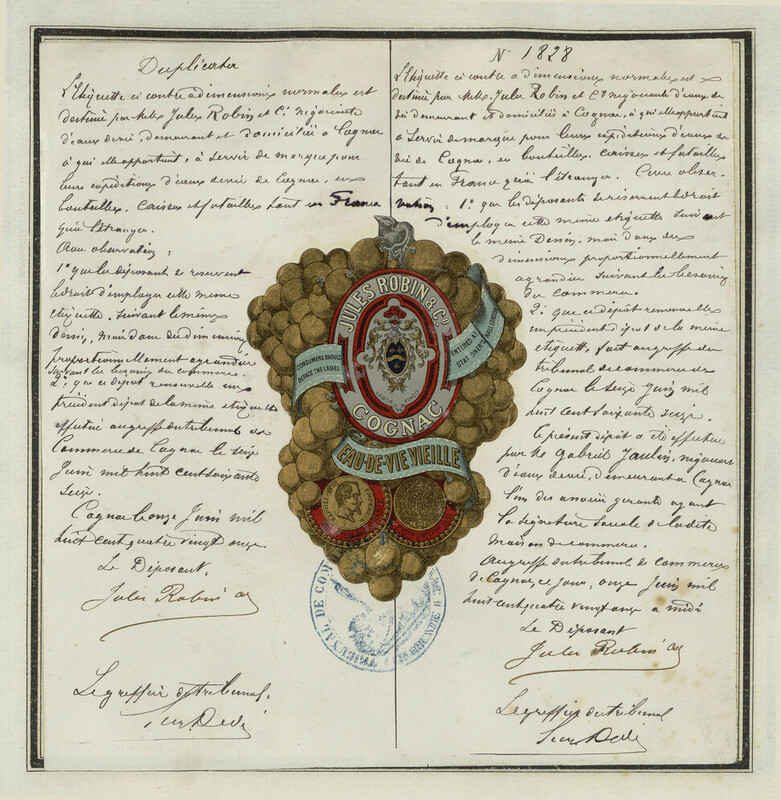 Duplicata
L'Etiquette ci contre a dimensions normales est
destinée par MM. Jules Robin et Cie négociants
d'eaux de vie, demeurant et domiciliés à Cognac
à qui elle appartient, à servir de marque pour
leurs expéditions d'eaux de vie de Cognac, en
bouteilles, caisses et futailles tant en France
qu'à l'étranger.
Avec observation :
1° que les déposants se réservent
le droit d'employer cette même
etiquette, suivant le même
dessin, mais dans des dimensions
proportionnellement agrandies
suivant les besoins du commerce.
2° que ce dépôt renouvelle un
précédent dépôt de la même etiquette
effectué au greffe du tribunal de
Commerce de Cognac le seize
Juin mil huit cent soixante
seize.
Cognac le onze Juin mil
huit cent quatre vingt onze.
Le Déposant,
Jules Robin & Co
Le greffier du tribunal,
N° 1828
L'Etiquette ci contre a dimensions normales est
destinée par MM. Jules Robin et Cie négociants d'eaux de
vie demeurant et domiciliés à Cognac, à qui elle appartient
à servir de marque pour leurs expéditions d'eaux de
vie de Cognac, en bouteilles, caisses et futailles
tant en France qu'à l'étranger. Avec obser-
vation : 1° que les déposants se réservent le droit
d'employer cette même etiquette suivant
le même Dessin, mais dans des
dimensions proportionnellement
agrandies suivant les besoins
du commerce.
2° que ce dépôt renouvelle
un précédent dépôt de la même
etiquette, fait au greffe du
tribunal de commerce de
Cognac le seize Juin mil
huit cent soixante seize.
Le présent dépôt a été effectué
par Mr Gabriel Jaulin, négociant
d'eaux de vie, demeurant à Cognac
l'un des associés gérants ayant
la signature sociale de la dite
maison de commerce.
Au greffe du tribunal de commerce
de Cognac, ce jour, onze Juin mil
huit cent quatre vingt onze à midi
Le Déposant
Jules Robin & Co
Le greffier du tribunal
JULES ROBIN & Co
CONSUMERS SHOULD
DEFACE THE LABEL
ENTERED AT
STATIONERS HALL LONDON
COGNAC
EAU-DE-VIE VIEILLE
TRIBUNAL DE COM